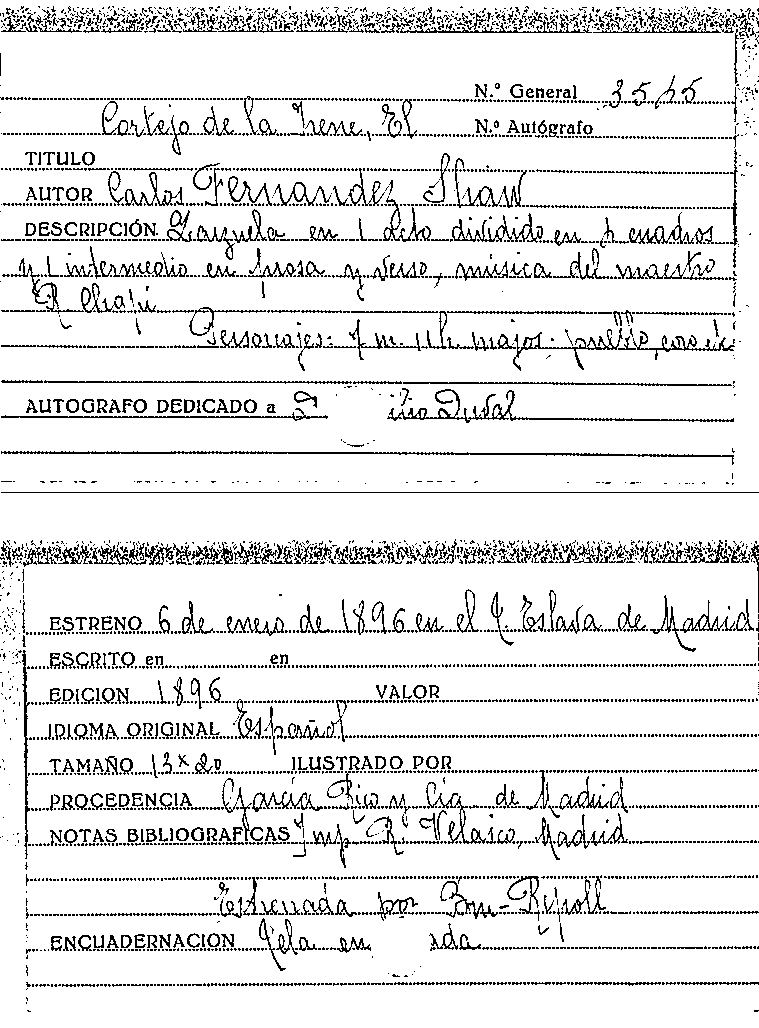 N.º General 3515
Cortejo de la Irene, El N.º Autógrafo
TITULO
AUTOR Carlos Fernandez Shaw
DESCRIPCIÓN Zarzuela en 1 acto dividido en cuadros
y 1 intermedio en prosa y verso, música del maestro
R. Chapí
Personajes: 7 m. 11 h. majos. pueblo, coro etc
AUTOGRAFO DEDICADO a Duval
ESTRENO 6 de enero de 1896 en el T. Eslava de Madrid
ESCRITO en en
EDICION 1896 VALOR
IDIOMA ORIGINAL Español
TAMAÑO 13 x 20 ILUSTRADO POR
PROCEDENCIA García Rico y Cia de Madrid
NOTAS BIBLIOGRAFICAS Imp. R. Velasco, Madrid
Estrenada por
ENCUADERNACION Tela en